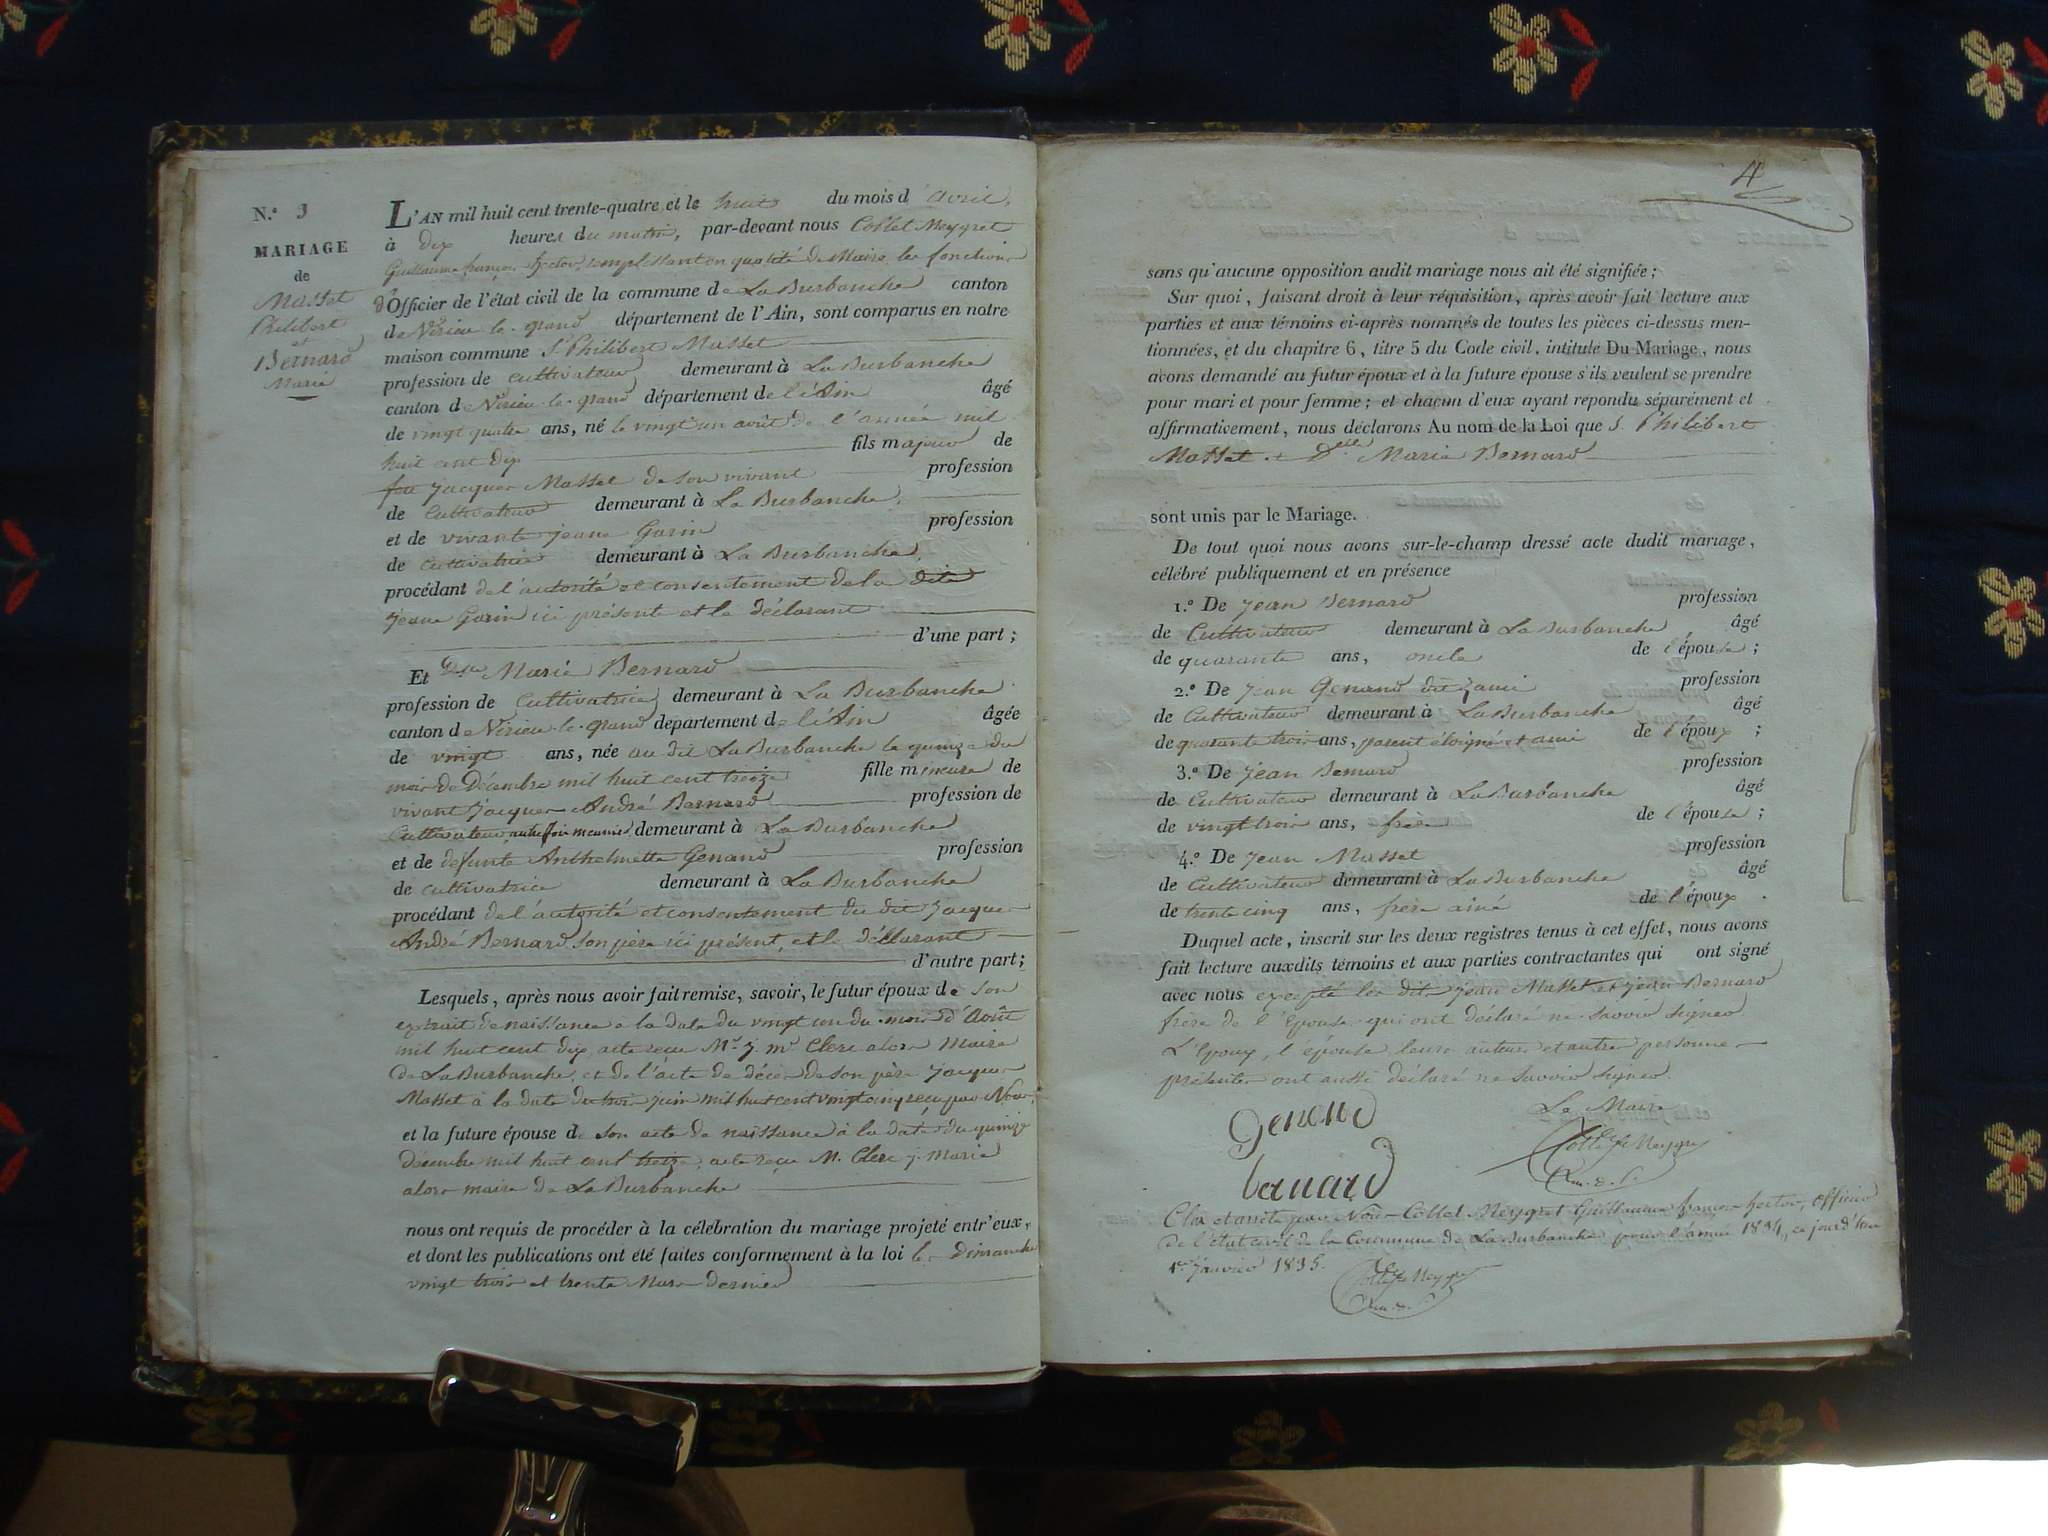 N.º 3
MARIAGE
de
Masset
Philibert
et
Bernard
Marie
L'AN mil huit cent trente-quatre et le huit du mois d'avril,
à dix heures du matin, par-devant nous Collet Meygret
Guillaume françois hector, remplissant en qualité de Maire les fonctions
d'Officier de l'état civil de la commune de La Burbanche canton
de Virieu-le-grand département de l'Ain, sont comparus en notre
maison commune S.r Philibert Masset
profession de cultivateur demeurant à La Burbanche
canton de Virieu-le-grand département de l'Ain âgé
de vingt quatre ans, né le vingt un août de l'année mil
huit cent dix fils majeur de
feu jacques Masset de son vivant profession
de Cultivateur demeurant à La Burbanche,
et de vivante jeane Garin profession
de cultivatrice demeurant à La Burbanche,
procédant de l'autorité et consentement de la dite
jeane Garin ici présente et le déclarant
d'une part;
Et Marie Bernard
profession de Cultivatrice demeurant à La Burbanche
canton de Virieu-le-grand département de l'Ain âgée
de vingt ans, née au dit La Burbanche le quinze du
mois de Décembre mil huit cent treize fille mineure de
vivant jacques André Bernard profession de
Cultivateur autrefois meunier, demeurant à La Burbanche
et de défunte Anthelmette Genand profession
de cultivatrice demeurant à La Burbanche
procédant de l'autorité et consentement du dit jacques
André Bernard, son père ici présent, et le déclarant
d'autre part;
Lesquels, après nous avoir fait remise, savoir, le futur époux de son
extrait de naissance à la date du vingt un du mois d'Août
mil huit cent dix, acte reçu M.r j. m.e Clerc alors Maire
de La Burbanche, et de l'acte de décès de son père jacques
Masset à la date du trois juin mil huit cent vingt cinq reçu par Nous,
et la future épouse de son acte de naissance à la date du quinze
décembre mil huit cent treize, acte reçu M. Clerc j. Marie
alors maire de La Burbanche
nous ont requis de procéder à la célébration du mariage projeté entr'eux,
et dont les publications ont été faites conformement à la loi les Dimanches
vingt trois et trente Mars dernier
4
sans qu'aucune opposition audit mariage nous ait été signifiée;
Sur quoi, faisant droit à leur réquisition, après avoir fait lecture aux
parties et aux témoins ci-après nommés de toutes les pièces ci-dessus men-
tionnées, et du chapitre 6, titre 5 du Code civil, intitulé Du Mariage, nous
avons demandé au futur époux et à la future épouse s'ils veulent se prendre
pour mari et pour femme; et chacun d'eux ayant repondu séparément et
affirmativement, nous déclarons Au nom de la Loi que S. Philibert
Masset et D.elle Marie Bernard
sont unis par le Mariage.
De tout quoi nous avons sur-le-champ dressé acte dudit mariage,
célébré publiquement et en présence
1.º De jean Bernard profession
de Cultivateur demeurant à La Burbanche âgé
de quarante ans, oncle de l'épouse;
2.º De jean Genand dit profession
de Cultivateur demeurant à La Burbanche âgé
de quarante trois ans, parent éloigné et ami de l'époux;
3.º De jean Bernard profession
de Cultivateur demeurant à La Burbanche âgé
de vingt trois ans, frère de l'épouse;
4.º De jean Masset profession
de Cultivateur demeurant à La Burbanche âgé
de trente cinq ans, frère aîné de l'époux.
Duquel acte, inscrit sur les deux registres tenus à cet effet, nous avons
fait lecture auxdits témoins et aux parties contractantes qui ont signé
avec nous excepté les dits jean Masset et jean Bernard
frère de l'épouse qui ont déclaré ne savoir signer
L'époux, l'épouse leurs auteurs et autres personnes
présentes ont aussi déclaré ne savoir signer.
Le Maire
genend
bernard
Collet Meygret
Clos et arrêté par Nous Collet Meygret Guillaume françois hector, officier
de l'état civil de la Commune de La Burbanche pour l'année 1834, ce jourd'hui
1.er Janvier 1835.
Collet Meygret